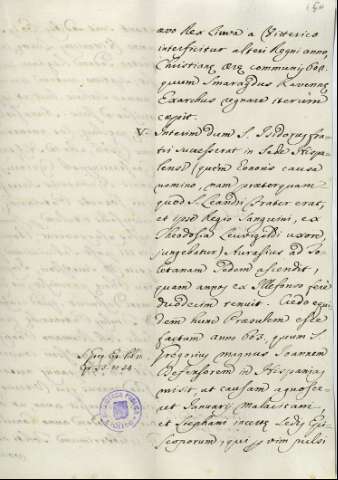 150
ævo Rex Liuva a Viterico
interficitur alteri Regni anno,
Christianę ærę communis 603.
quum Smaragdus Ravenaę
Exarchus regnare iterum
cœpit.
V. Interim dum S. Isidorus fra-
tri successerat in Sede Hispa-
lensi (quem honoris causa
nomino, nam præterquam
quod S. Leandri frater erat,
et ipse Regio Sanguini, ex
Theodosia Leuvigildi uxore,
jungebatur) Aurasius ad To-
letanam Sedem ascendit,
quam annos ex Illefonso fere
duodecim tenuit. Credo equi-
dem hunc Præsulem esse
factum anno 603. quum S.
Gregorius magnus Joannem
Defensorem in Hispanias
misit, ut causam
et Januarij Malacitani,
et Stephani incertę Sedis Epi-
scoporum, qui per vim pulsi
BIBLIOTECA PUBLICA
TOLEDO